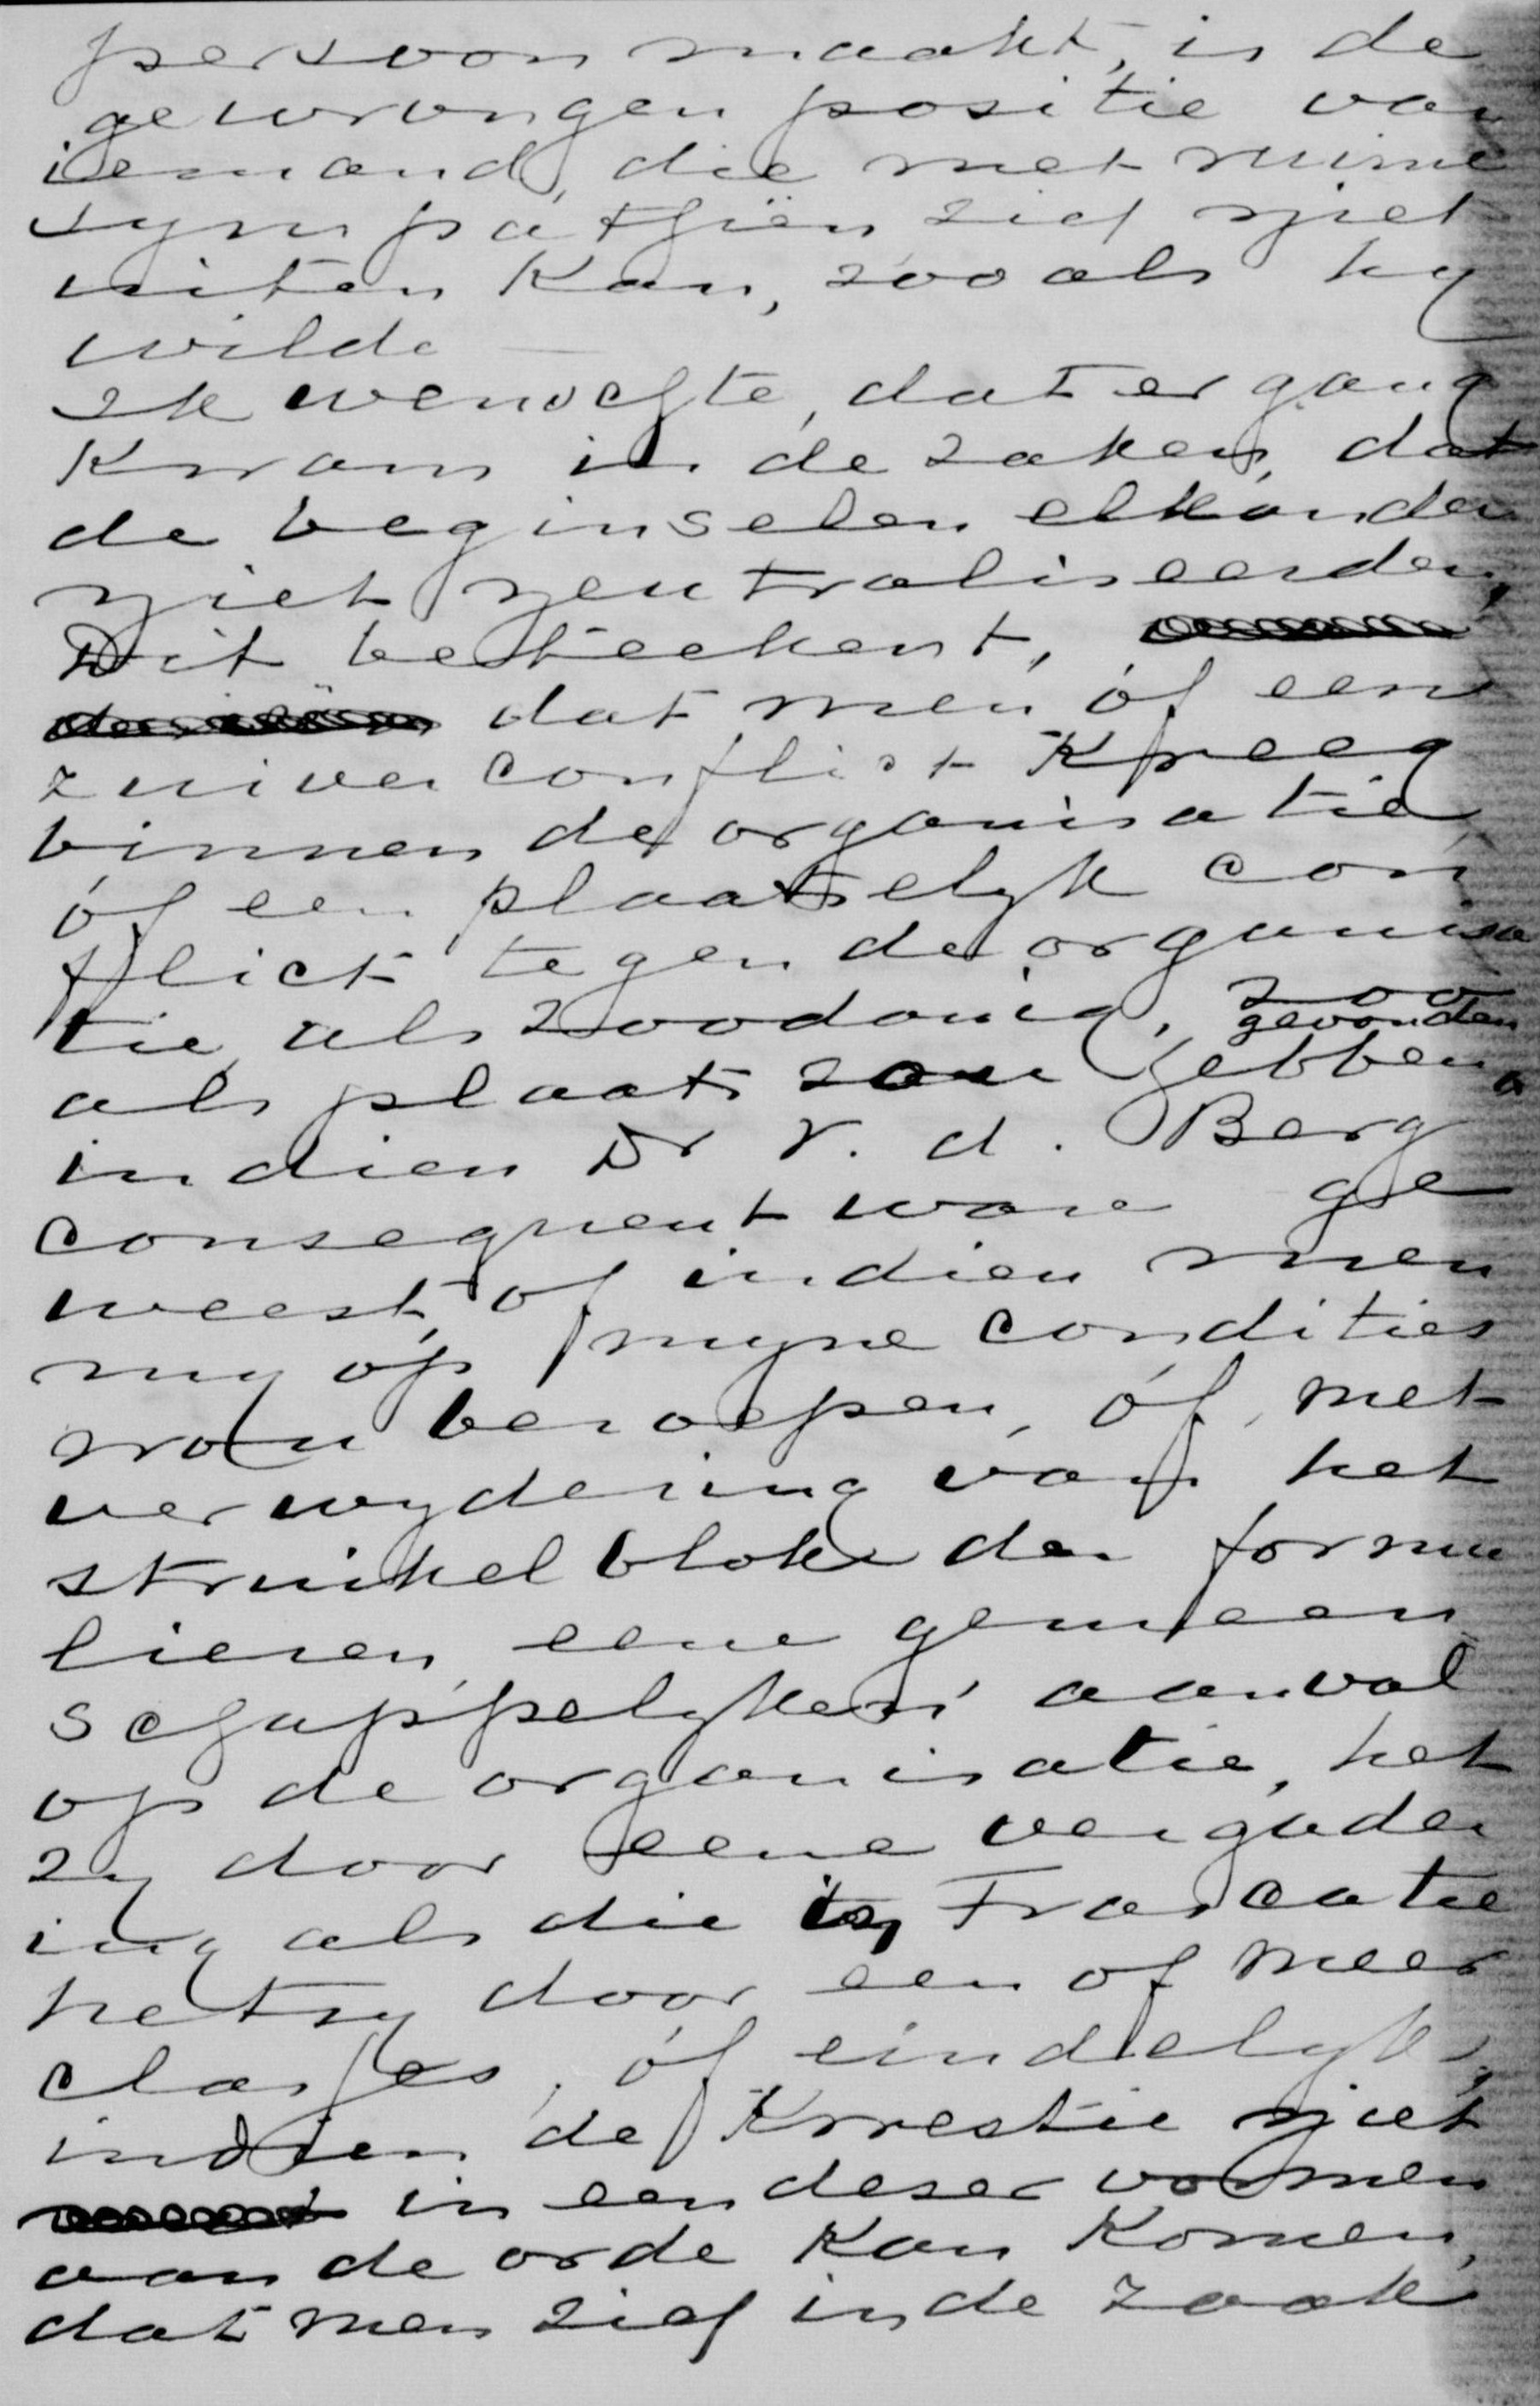 persoon maakt, is de
gewrongen positie van
iemand, die met ruime
sympathiën zich niet
uiten kan, zooals hy
wilde
Ik wenschte, dat er gang
kwam in de zaken, dat
de beginselen elkander
niet neutraliseerden,
Dit beteekent,
dat men óf een
zuiver conflict kreeg
binnen de organisatie
óf een plaatselyk con
flict tegen de organisa
tie als zoodanig, zoo
gevonden
als plaats zou hebben
indien Dr v. d. Berg
consequent ware ge
weest, of indien men
my op myne condities
wou beroepen, óf, met
verwydering van het
struikelblok der formu
lieren, eene gemeen
schappelyken aanval
op de organisatie, het
zy door eene vergader
ing als die in Frascatie
hetzy door een of meer
classes, óf eindelyk,
indien de kwestie niet
in een dezer vormen
aan de orde kan komen,
dat men zich in de zaak